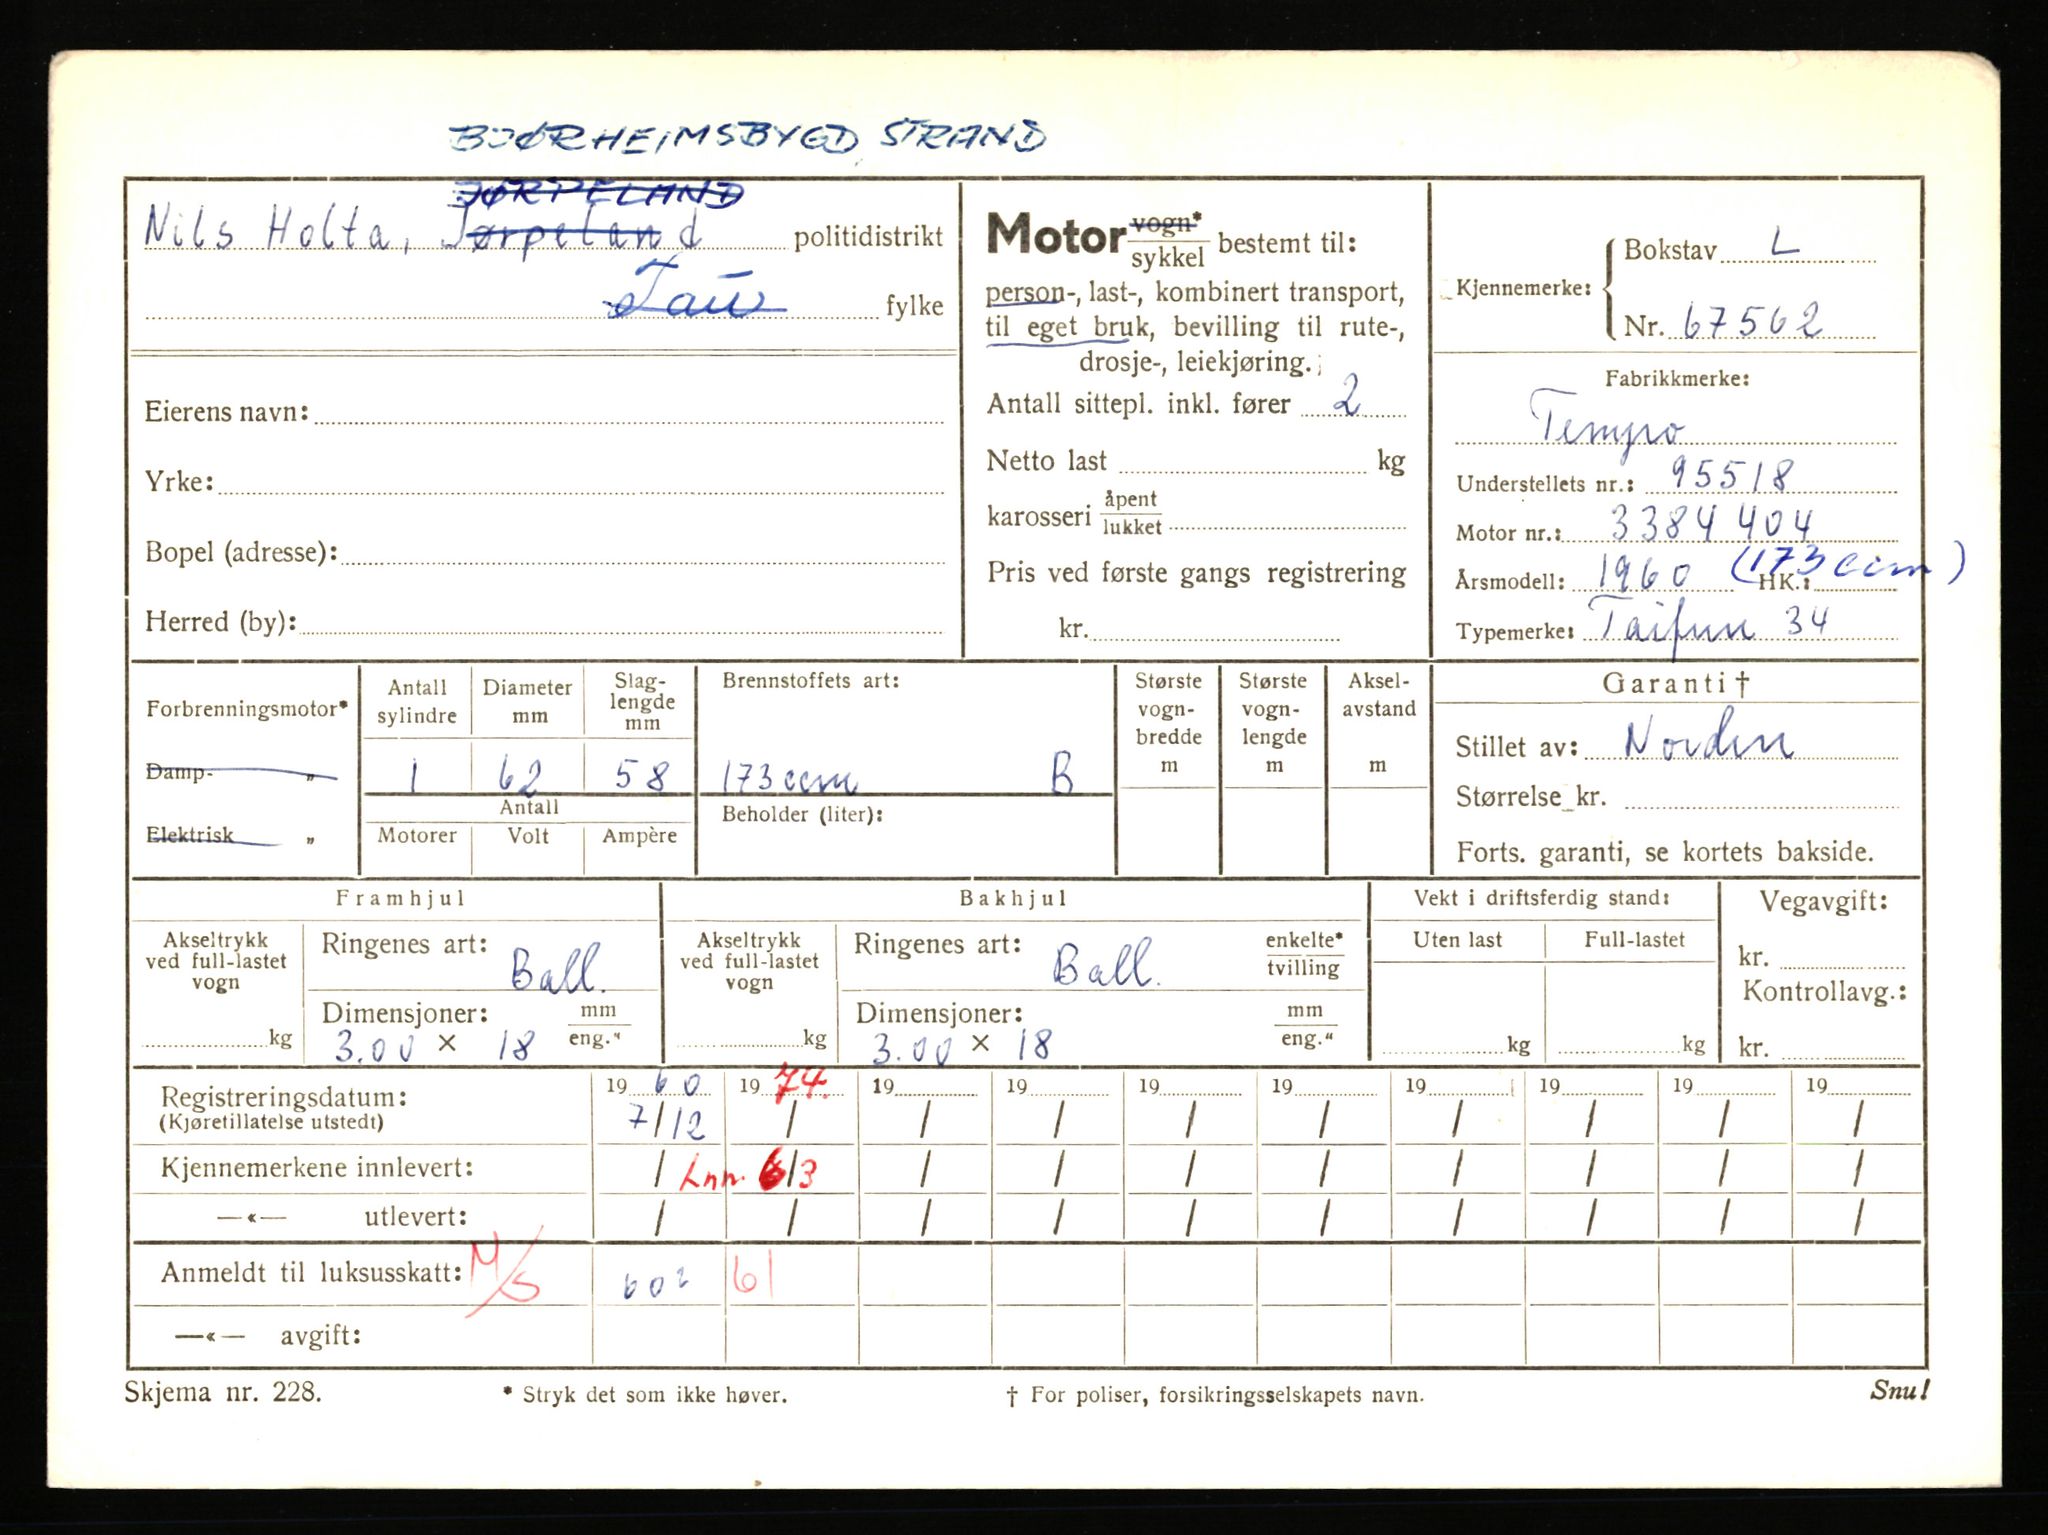 BJØRHEIMSBYGD STRAND
JØRPELAND
Nils Holta, Jørpeland politidistrikt
Tau fylke
Eierens navn:
Yrke:
Bopel (adresse):
Herred (by):
Motor vogn* / sykkel bestemt til:
person-, last-, kombinert transport,
til eget bruk, bevilling til rute-,
drosje-, leiekjøring.
Antall sittepl. inkl. fører 2
Netto last kg
karosseri åpent / lukket
Pris ved første gangs registrering
kr.
Kjennemerke: Bokstav L
Nr. 67562
Fabrikkmerke:
Tempo
Understellets nr.: 95518
Motor nr.: 3384404
Årsmodell: 1960 HK.: (173 ccm)
Typemerke: Taifun 34
Forbrenningsmotor*
Damp- „
Elektrisk „
Antall sylindre
Diameter mm
Slag-lengde mm
1 62 58
Antall
Motorer Volt Ampère
Brennstoffets art:
173 ccm B
Beholder (liter):
Største vogn-bredde m
Største vogn-lengde m
Aksel-avstand m
Garanti †
Stillet av: Norden
Størrelse kr.
Forts. garanti, se kortets bakside.
Framhjul
Akseltrykk ved full-lastet vogn
kg
Ringenes art: Ball.
Dimensjoner: mm / eng."
3.00 × 18
Bakhjul
Akseltrykk ved full-lastet vogn
kg
Ringenes art: Ball. enkelte* / tvilling
Dimensjoner: mm / eng."
3.00 × 18
Vekt i driftsferdig stand:
Uten last Full-lastet
kg kg
Vegavgift:
kr.
Kontrollavg.:
kr.
Registreringsdatum: 1960 1974. 19 19 19 19 19 19 19 19
(Kjøretillatelse utstedt) 7/12 / / / / / / / / /
Kjennemerkene innlevert: / Inn. 6/3 / / / / / / / /
—«— utlevert: / / / / / / / / / /
Anmeldt til luksusskatt: M/S 602 61
—«— avgift:
Skjema nr. 228. * Stryk det som ikke høver. † For poliser, forsikringsselskapets navn. Snu!